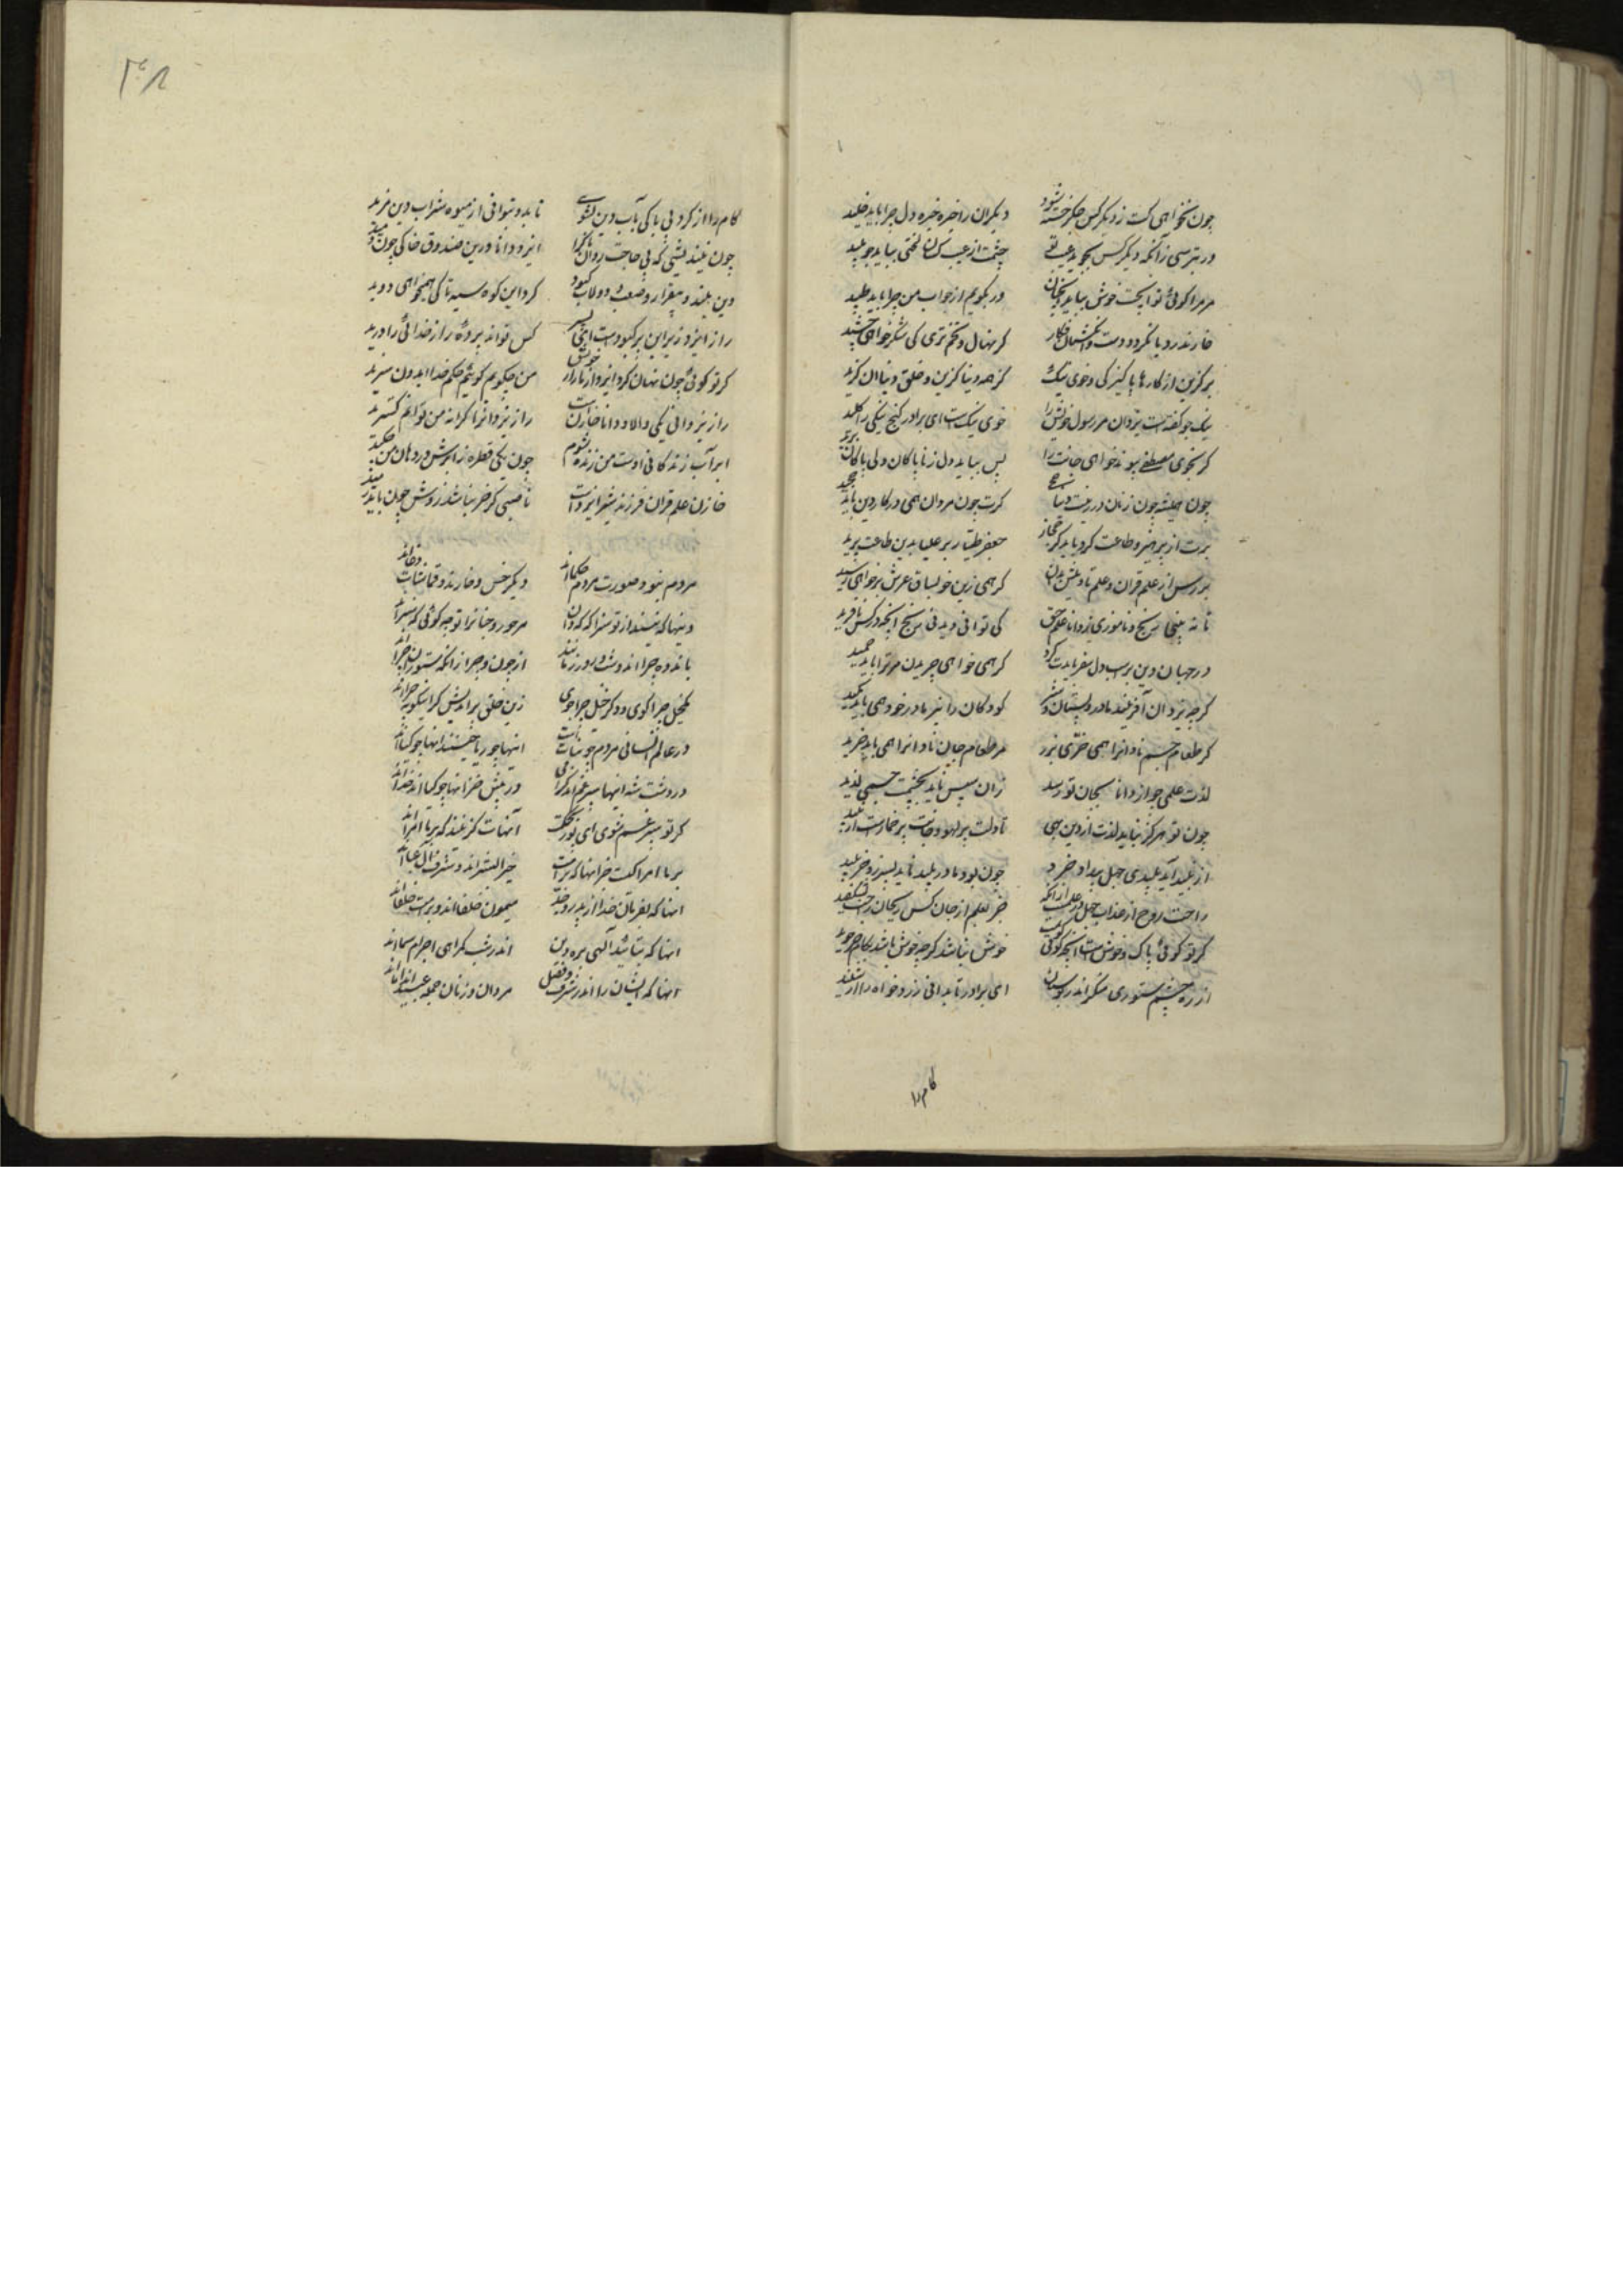 چون نخواهی کت ز دیگر کس جگر خسته شود دیگران را خیره خیره دل چرا باید خلید
ور بترسی زانکه دیگر کس بجوید عیب تو چشمت از عیب کسان لختی بباید
مر مرا گوئی توا سخت خوش بباید ور بگویم از جواب من چرا باید طپید
خار ندرود بانگردد دست و انگشتان فکار گر نهال و تخم تری کی شکر خواهی چشید
برگزین از کارها پاکیزگی و خوی نیک کز همه دنیا گزین و خلق دنیا این گزید
نیکخو گفته است یزدان مر رسول خویش را خوی نیکست ای برادر گنج نیکی را کلید
گر بخوی مصطفی پیوند خواهی جانت را پس بباید دل ز ناپاکان و بی باکان برید
چون همیشه چون زنان در زینت دنیا گرت چون مردان همی در کار دین باید
برت از پرهیز و طاعت کرد باید کز حجاز جعفر طیار بر علیا بدین طاعت پرید
بررس از علم قران و علم تاویلش بدان گر همی زین خو بساق عرش بر خواهی رسید
تا نه بینی رنج و ناموزی ز دانا علم حق کی توانی دید بی رنج آنچه در کس نافرید
در جهان دین بر اسب دل سفر بایدت کرد گر همی خواهی چریدن مر ترا باید چمید
گرچه یزدان آفریند مادر و پستان و شیر کودکان را شیر مادر خود همی باید مکید
گر طعام جسم نادان را همی خری بزر مر طعام جان نادان را همی باید خرید
لذت علمی چو از دانا بجان تو رسد زان سپس ناید بچشمت جسمی لذید
چون تو هرگز نیابد لذت از دین همی تا دلت پر لهو و جانت پر خمارست
از پلید آید پلیدی جهل بیداد و خرد چون بود مادر پلید ناید پسر زو جز پلید
راحت روح از عذاب جهل در علمست ازانکه جز بعلم از جان کس ریحان راحت نشکفید
گر تو گوئی پاک و خوشست آنچه گوئی خوش نباشد گرچه خوش باشد بکام خر خوید
از ره چشم ستوری منگر اندر بوستان ای برادر تا بدانی زرد خواه را از شنلید
کام را
۳۰۸
کام را از گرد بی باکی بآب دین بشوی تا بدو بتوانی از میوه شراب دین مزید
چون نیندیشی که بی حاجت روان پاک را ایزد دانا درین صندوق خاکی چون دمید
وین بلند و بیقرار و صعب دولاب کبود گرد این گوی سیه تا کی همیخواهی دوید
راز ایزد زیر این پرده کبودست ای پسر کس تواند پرده راز خدائی را درید
گر تو گوئی چون نهان کرد ایزد از ما راز خویش من چگویم گویم حکم خدا ایدون سزید
راز یزدانی یکی والا و دانا خازن است راز یزدان را گرانه من توانم گسترید
ابر آب زندگانی اوست من زنده شوم چون یکی قطره ز ابرش در دهان من چکید
خازن علم قران فرزند شیر ایزدست ناصبی گر خر نباشد زوش چون باید رمید
مردم نبود صورت مردم حکما اند دیگر خس و خارند و قماشات و دغا اند
اینها که نبینند از تو سزا که که و دان مر حور و جنان را تو چه گوئی که سزا اند
باندوه چرا اند و شب و روز بمانند از چون و چرا زانکه ستوران چرا اند
بکنجل چرا گوی و دگر خل چرا جوی زین خلق بر اندیش گر
در عالم انسانی مردم چو نباتست اینها چو ریاحینند آنها چو گیا اند
در دشت شد اینها سپر غم در بیش خرد اینها چو گیا اند
گر تو سپر غم شوی ای پور آنهات گزینند که بر ما امرا اند
بر ما امرا کیست جز آنها که خیر البشر اند و شرف آل عبا اند
آنها که بفرمان خدا از پدر و جد میمون خلفا اند و بر امت خلفا اند
آنها که بتائید الهی بره دین اندر شب گمراهی اجرام سما اند
آنها که ایشان را اندر شرف و فضل مردان و زنان جمله عبید اند و اما اند